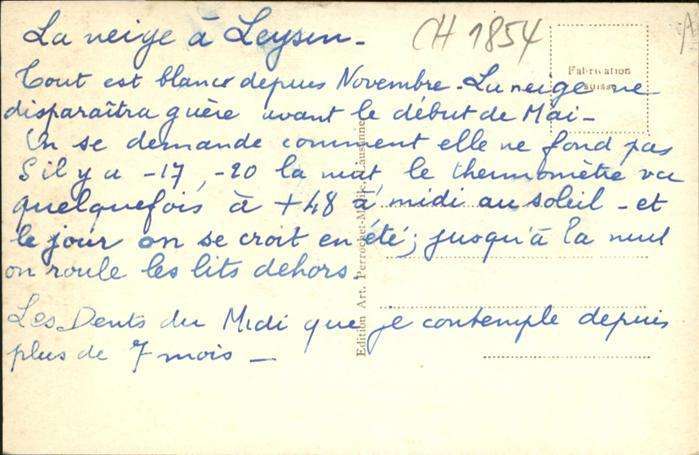 La neige à Leysin-
CH 1854
Fabrication
Suisse
Tout est blanc depuis Novembre - La neige ne
disparaîtra guère avant le début de Mai-
On se demande comment elle ne fond pas
S'il y a -17, -20 la nuit le thermomètre va
quelquefois à +48 à midi au soleil - et
le jour on se croit en été; jusqu'à la nuit
on roule les lits dehors.
Les Dents du Midi que je contemple depuis
plus de 7 mois -
Edition Art. Perrochet-Matile, Lausanne